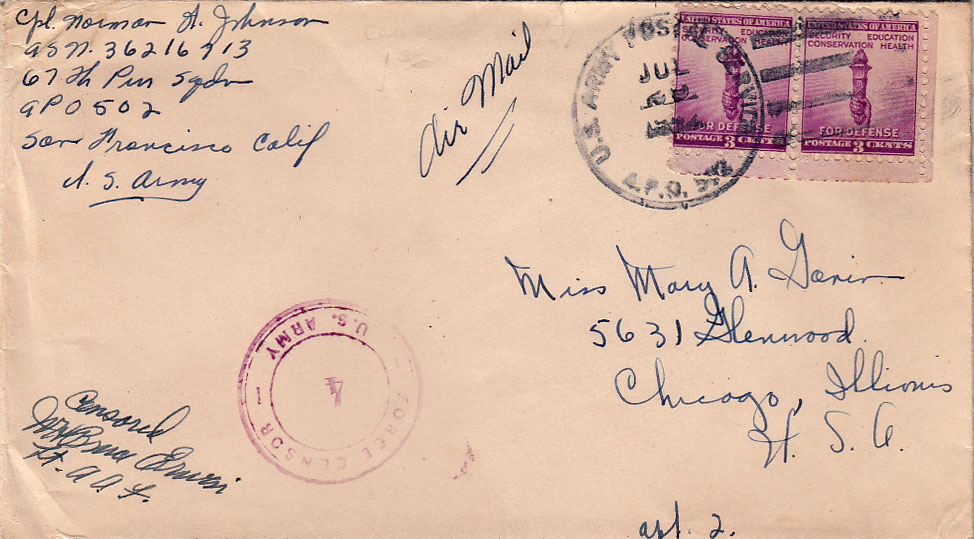 Cpl. Norman A. Johnson
ASN. 36216913
67th Pur Sqdn
APO 502
San Francisco Calif
U. S. Army
Air Mail
U.S. ARMY POSTAL SERVICE
JUL
A.P.O. 502
UNITED STATES OF AMERICA
SECURITY EDUCATION
CONSERVATION HEALTH
FOR DEFENSE
POSTAGE 3 CENTS
UNITED STATES OF AMERICA
SECURITY EDUCATION
CONSERVATION HEALTH
FOR DEFENSE
POSTAGE 3 CENTS
Miss Mary A. Gavin
5631 Glenwood
Chicago, Illionis
U. S. A.
apt. 2.
U.S. ARMY
4
FORCE CENSOR
Censored